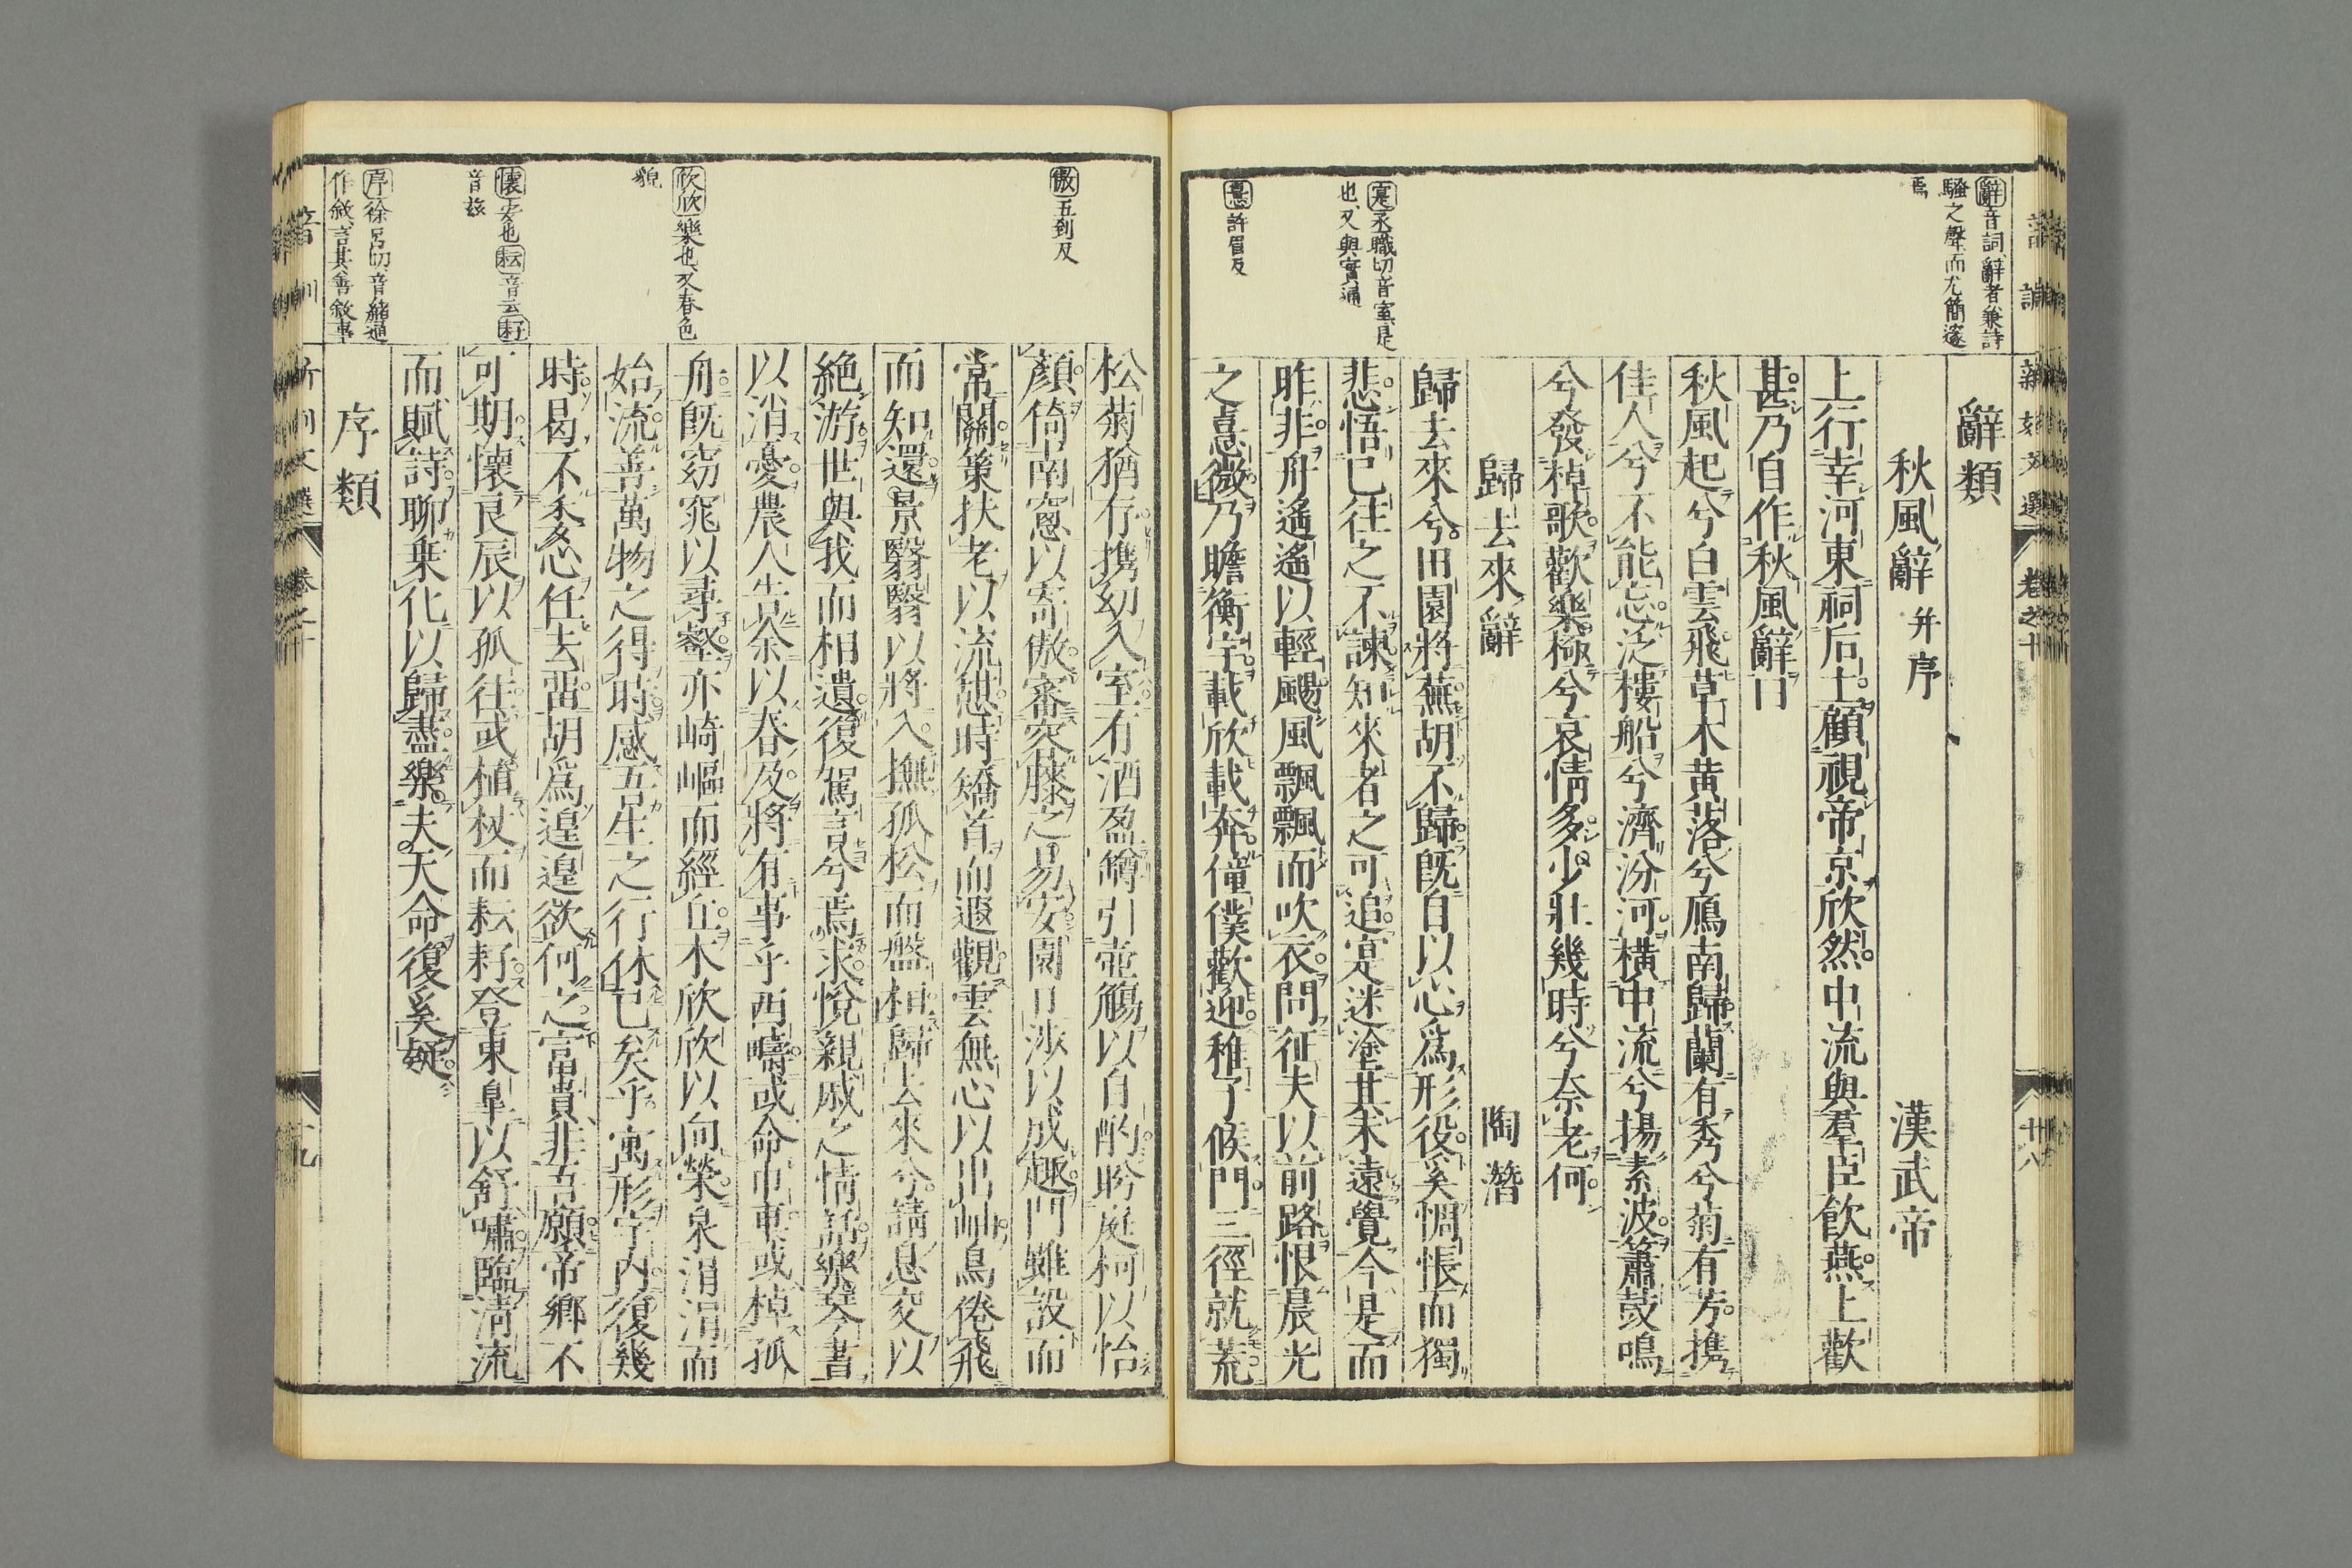 辭音詞、辭者兼詩
騷之聲、而尤簡邃
焉
寔丞職切音室是
也、又與實通
憙許眉反
辭類
秋風辭 并序 漢武帝
上行幸河東祠后土顧視帝京欣然中流與羣臣飲燕上歡
甚乃自作秋風辭曰
秋風起兮白雲飛草木黄落兮鴈南歸蘭有秀兮菊有芳攜
佳人兮不能忘泛樓船兮濟汾河橫中流兮揚素波簫鼓鳴
兮發棹歌歡樂極兮哀情多少壯幾時兮奈老何
歸去來辭 陶潛
歸去來兮田園將蕪胡不歸既自以心爲形役奚惆悵而獨
悲悟已往之不諫知來者之可追寔迷塗其未遠覺今是而
昨非舟遙遙以輕颺風飄飄而吹衣問征夫以前路恨晨光
之憙微乃瞻衡宇載欣載奔僮僕歡迎稚子候門三徑就荒
傲五到反
欣欣樂也又春色
貌
懷安也 耘音云 耔
音茲
序徐呂切音緒通
作敘言其善敘事
松菊猶存携幼入室有酒盈罇引壺觴以自酌眄庭柯以怡
顏倚南窻以寄傲審容膝之易安園日涉以成趣門雖設而
常關策扶老以流憩時矯首而遐觀雲無心以出岫鳥倦飛
而知還景翳翳以將入撫孤松而盤桓歸去來兮請息交以
絶游世與我而相遺復駕言兮焉求悅親戚之情話樂琴書
以消憂農人告余以春及將有事乎西疇或命巾車或棹孤
舟既窈窕以尋壑亦崎嶇而經丘木欣欣以向榮泉涓涓而
始流善萬物之得時感吾生之行休已矣乎寓形宇內復幾
時曷不委心任去留胡爲遑遑欲何之富貴非吾願帝鄉不
可期懷良辰以孤往或植杖而耘耔登東皐以舒嘯臨淸流
而賦詩聊乗化以歸盡樂夫天命復奚疑
序類